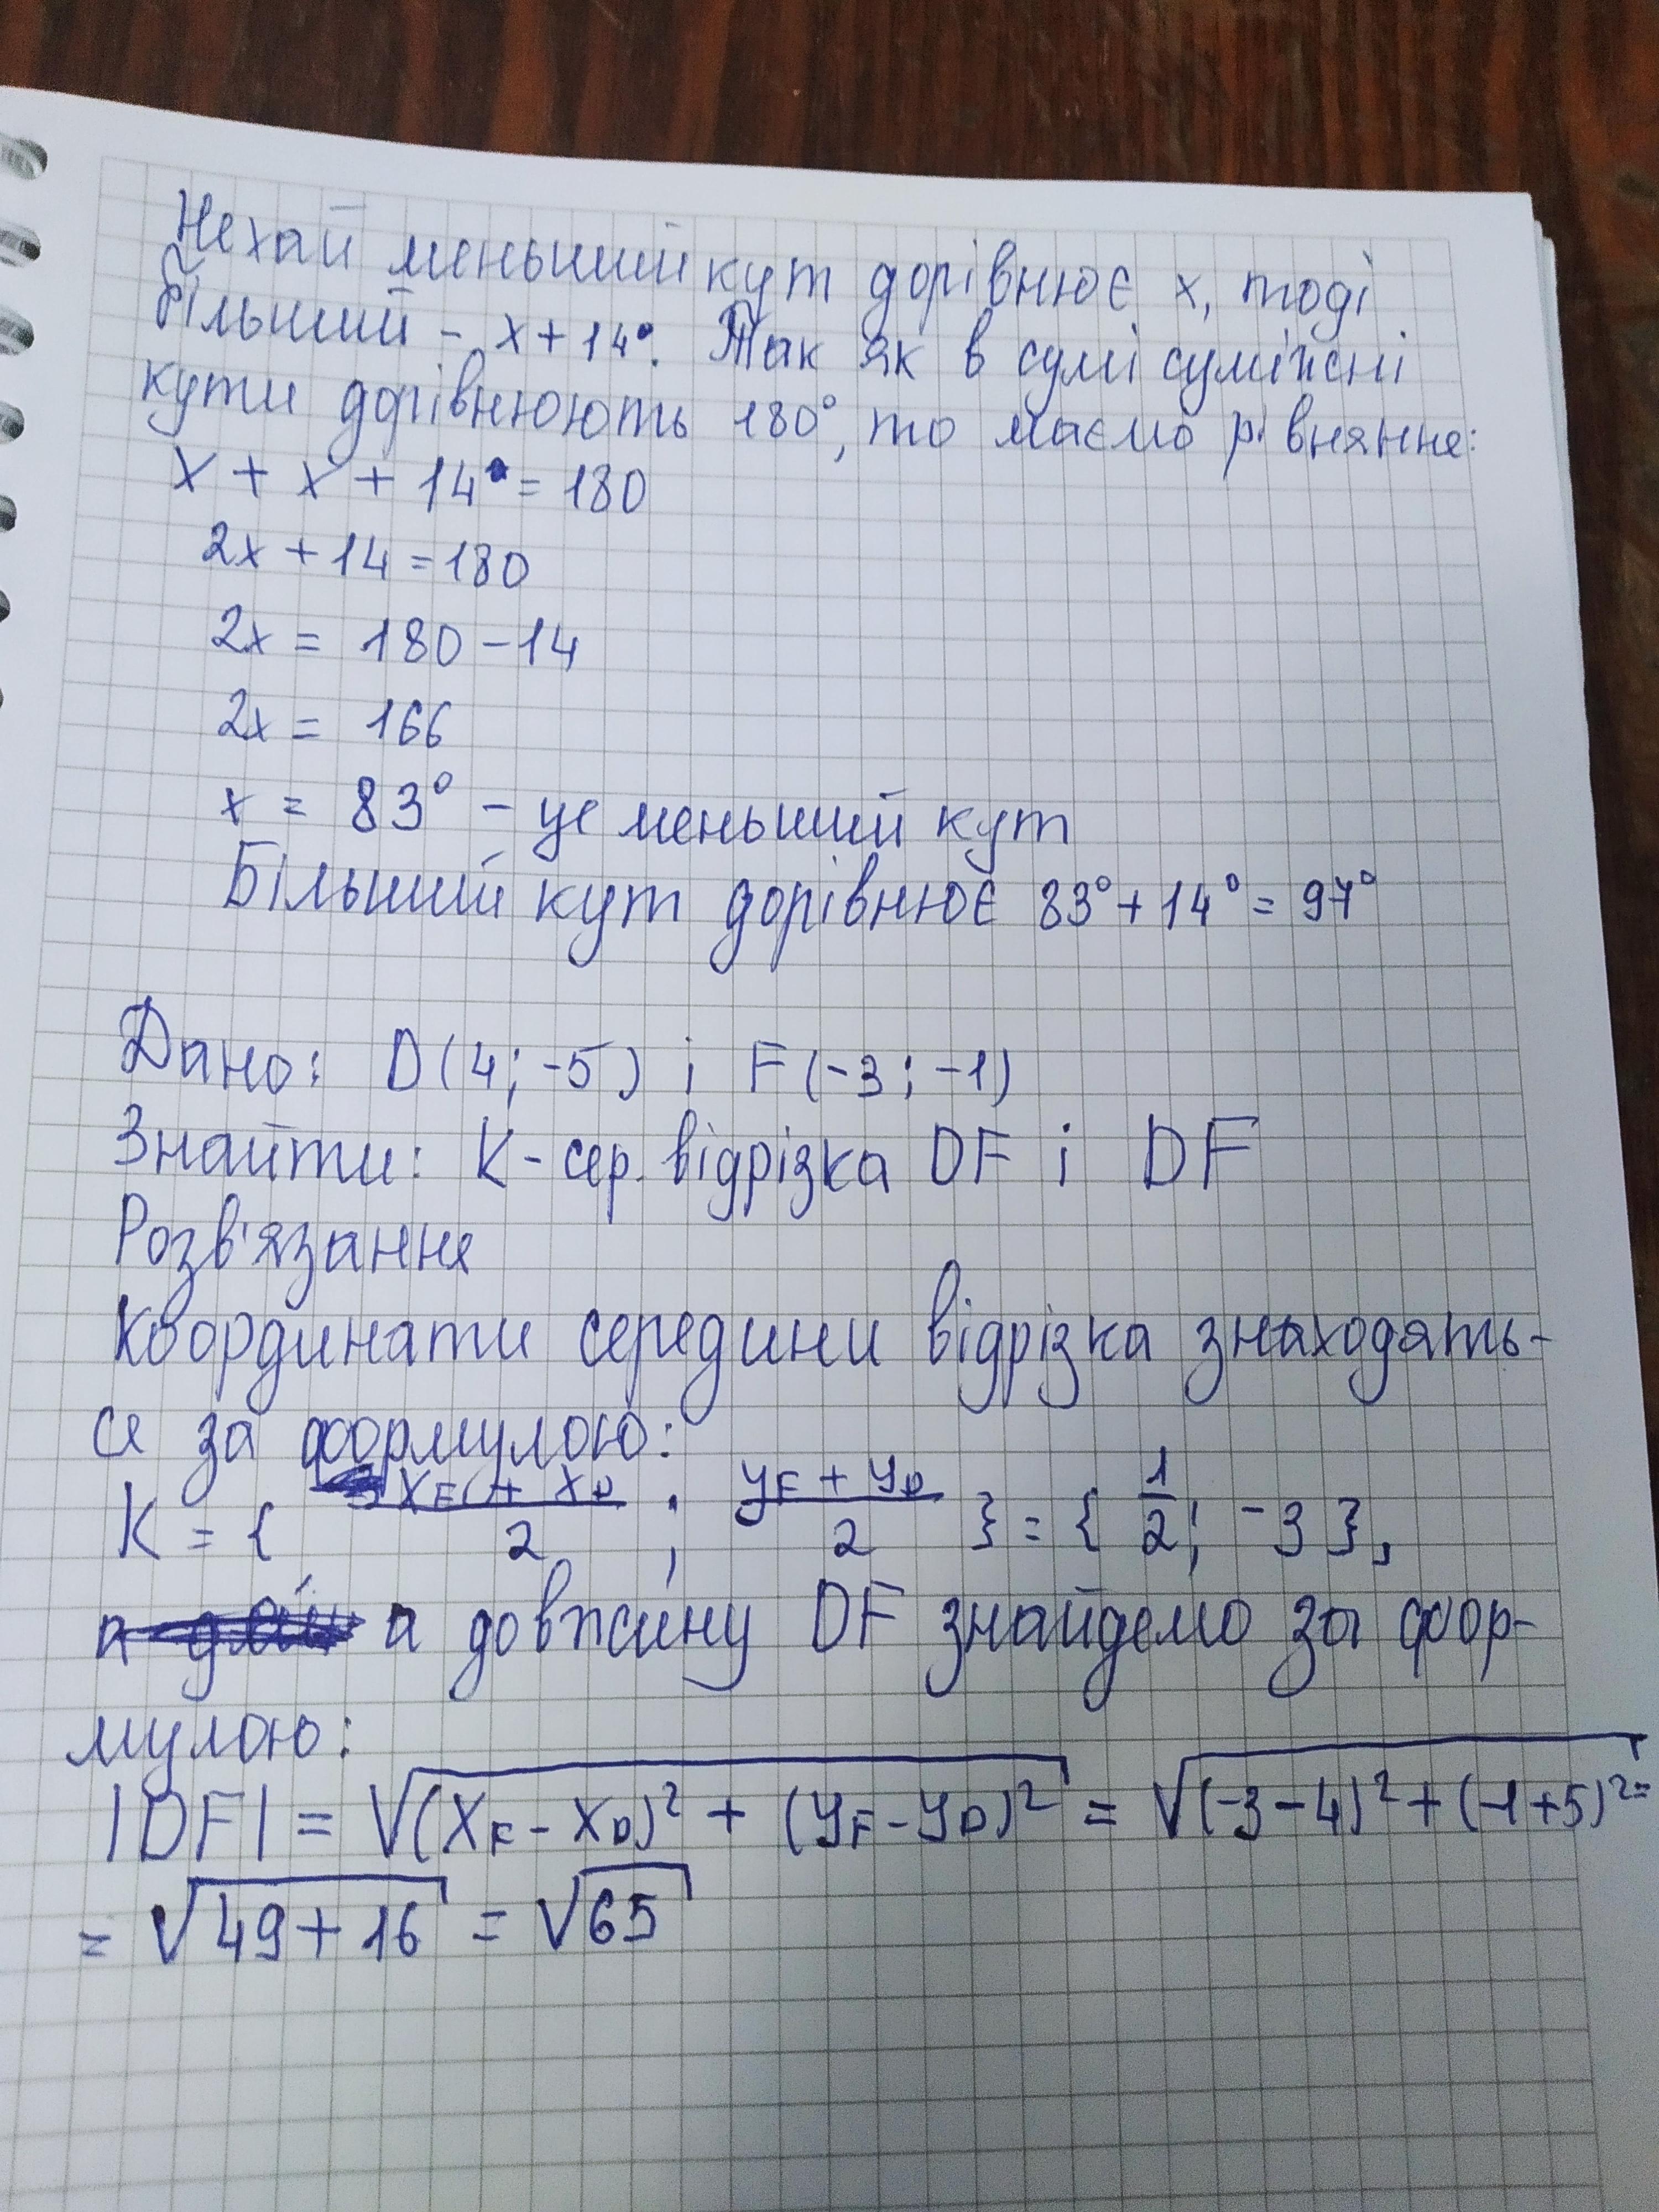 Нехай меньший кут дорівнює x, тоді
більший - x + 14°. Так як в сумі суміжні
кути дорівнюють 180°, то маємо рівняння:
x + x + 14° = 180
2x + 14 = 180
2x = 180 - 14
2x = 166
x = 83° - це меньший кут
Більший кут дорівнює 83° + 14° = 97°
Дано: D(4; -5) і F(-3; -1)
Знайти: K - сер. відрізка DF і DF
Розв'язання
Координати середини відрізка знаходять-
ся за формулою:
K = { (x_F + x_D)/2 ; (y_F + y_D)/2 } = { 1/2 ; -3 },
а довжину DF знайдемо за фор-
мулою:
|DF| = √((x_F - x_D)² + (y_F - y_D)²) = √((-3-4)² + (-1+5)²) =
= √(49 + 16) = √65